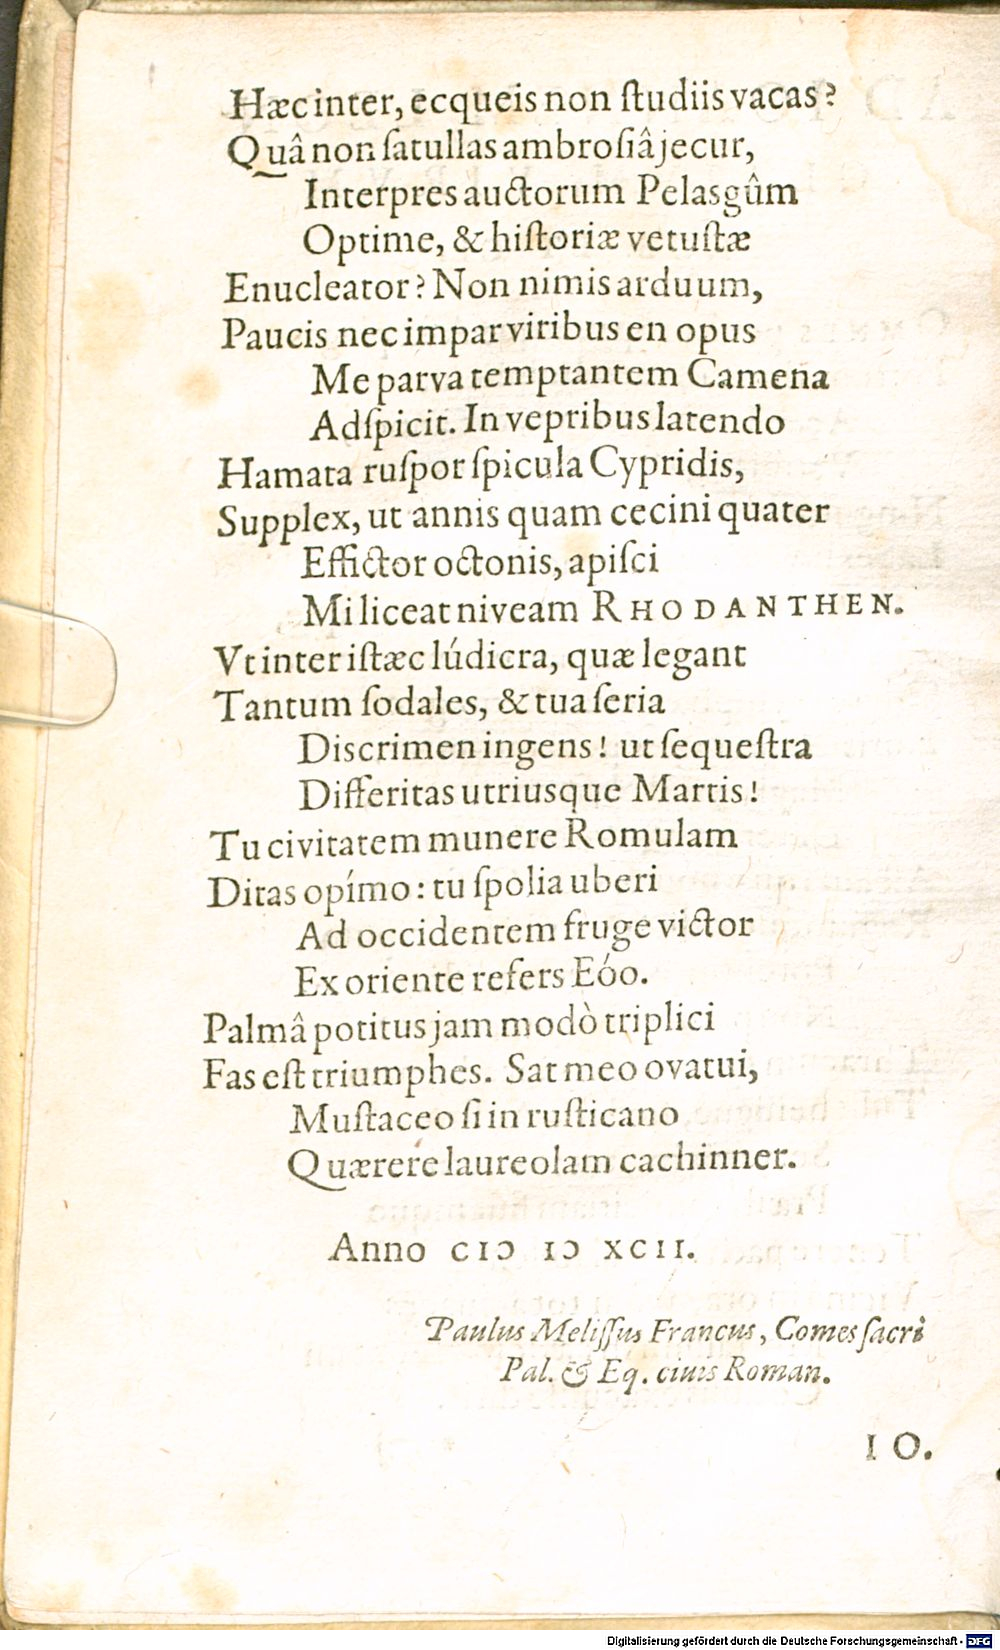 Hæc inter, ecqueis non ſtudiis vacas?
Quâ non ſatullas ambroſiâ jecur,
Interpres auctorum Pelasgûm
Optime, & hiſtoriæ vetuſtæ
Enucleator? Non nimis arduum,
Paucis nec impar viribus en opus
Me parva temptantem Camena
Adſpicit. In vepribus latendo
Hamata ruſpor ſpicula Cypridis,
Supplex, ut annis quam cecini quater
Effictor octonis, apiſci
Mi liceat niveam RHODANTHEN.
Vt inter iſtæc lúdicra, quæ legant
Tantum ſodales, & tua ſeria
Discrimen ingens! ut ſequeſtra
Differitas utriusque Martis!
Tu civitatem munere Romulam
Ditas opímo: tu ſpolia uberi
Ad occidentem fruge victor
Ex oriente refers Eóo.
Palmâ potitus jam modò triplici
Fas eſt triumphes. Sat meo ovatui,
Muſtaceo ſi in ruſticano
Quærere laureolam cachinner.
Anno CIↃ IↃ XCII.
Paulus Meliſſus Francus, Comes ſacri
Pal. & Eq. ciuis Roman.
IO.
Digitalisierung gefördert durch die Deutsche Forschungsgemeinschaft - DFG